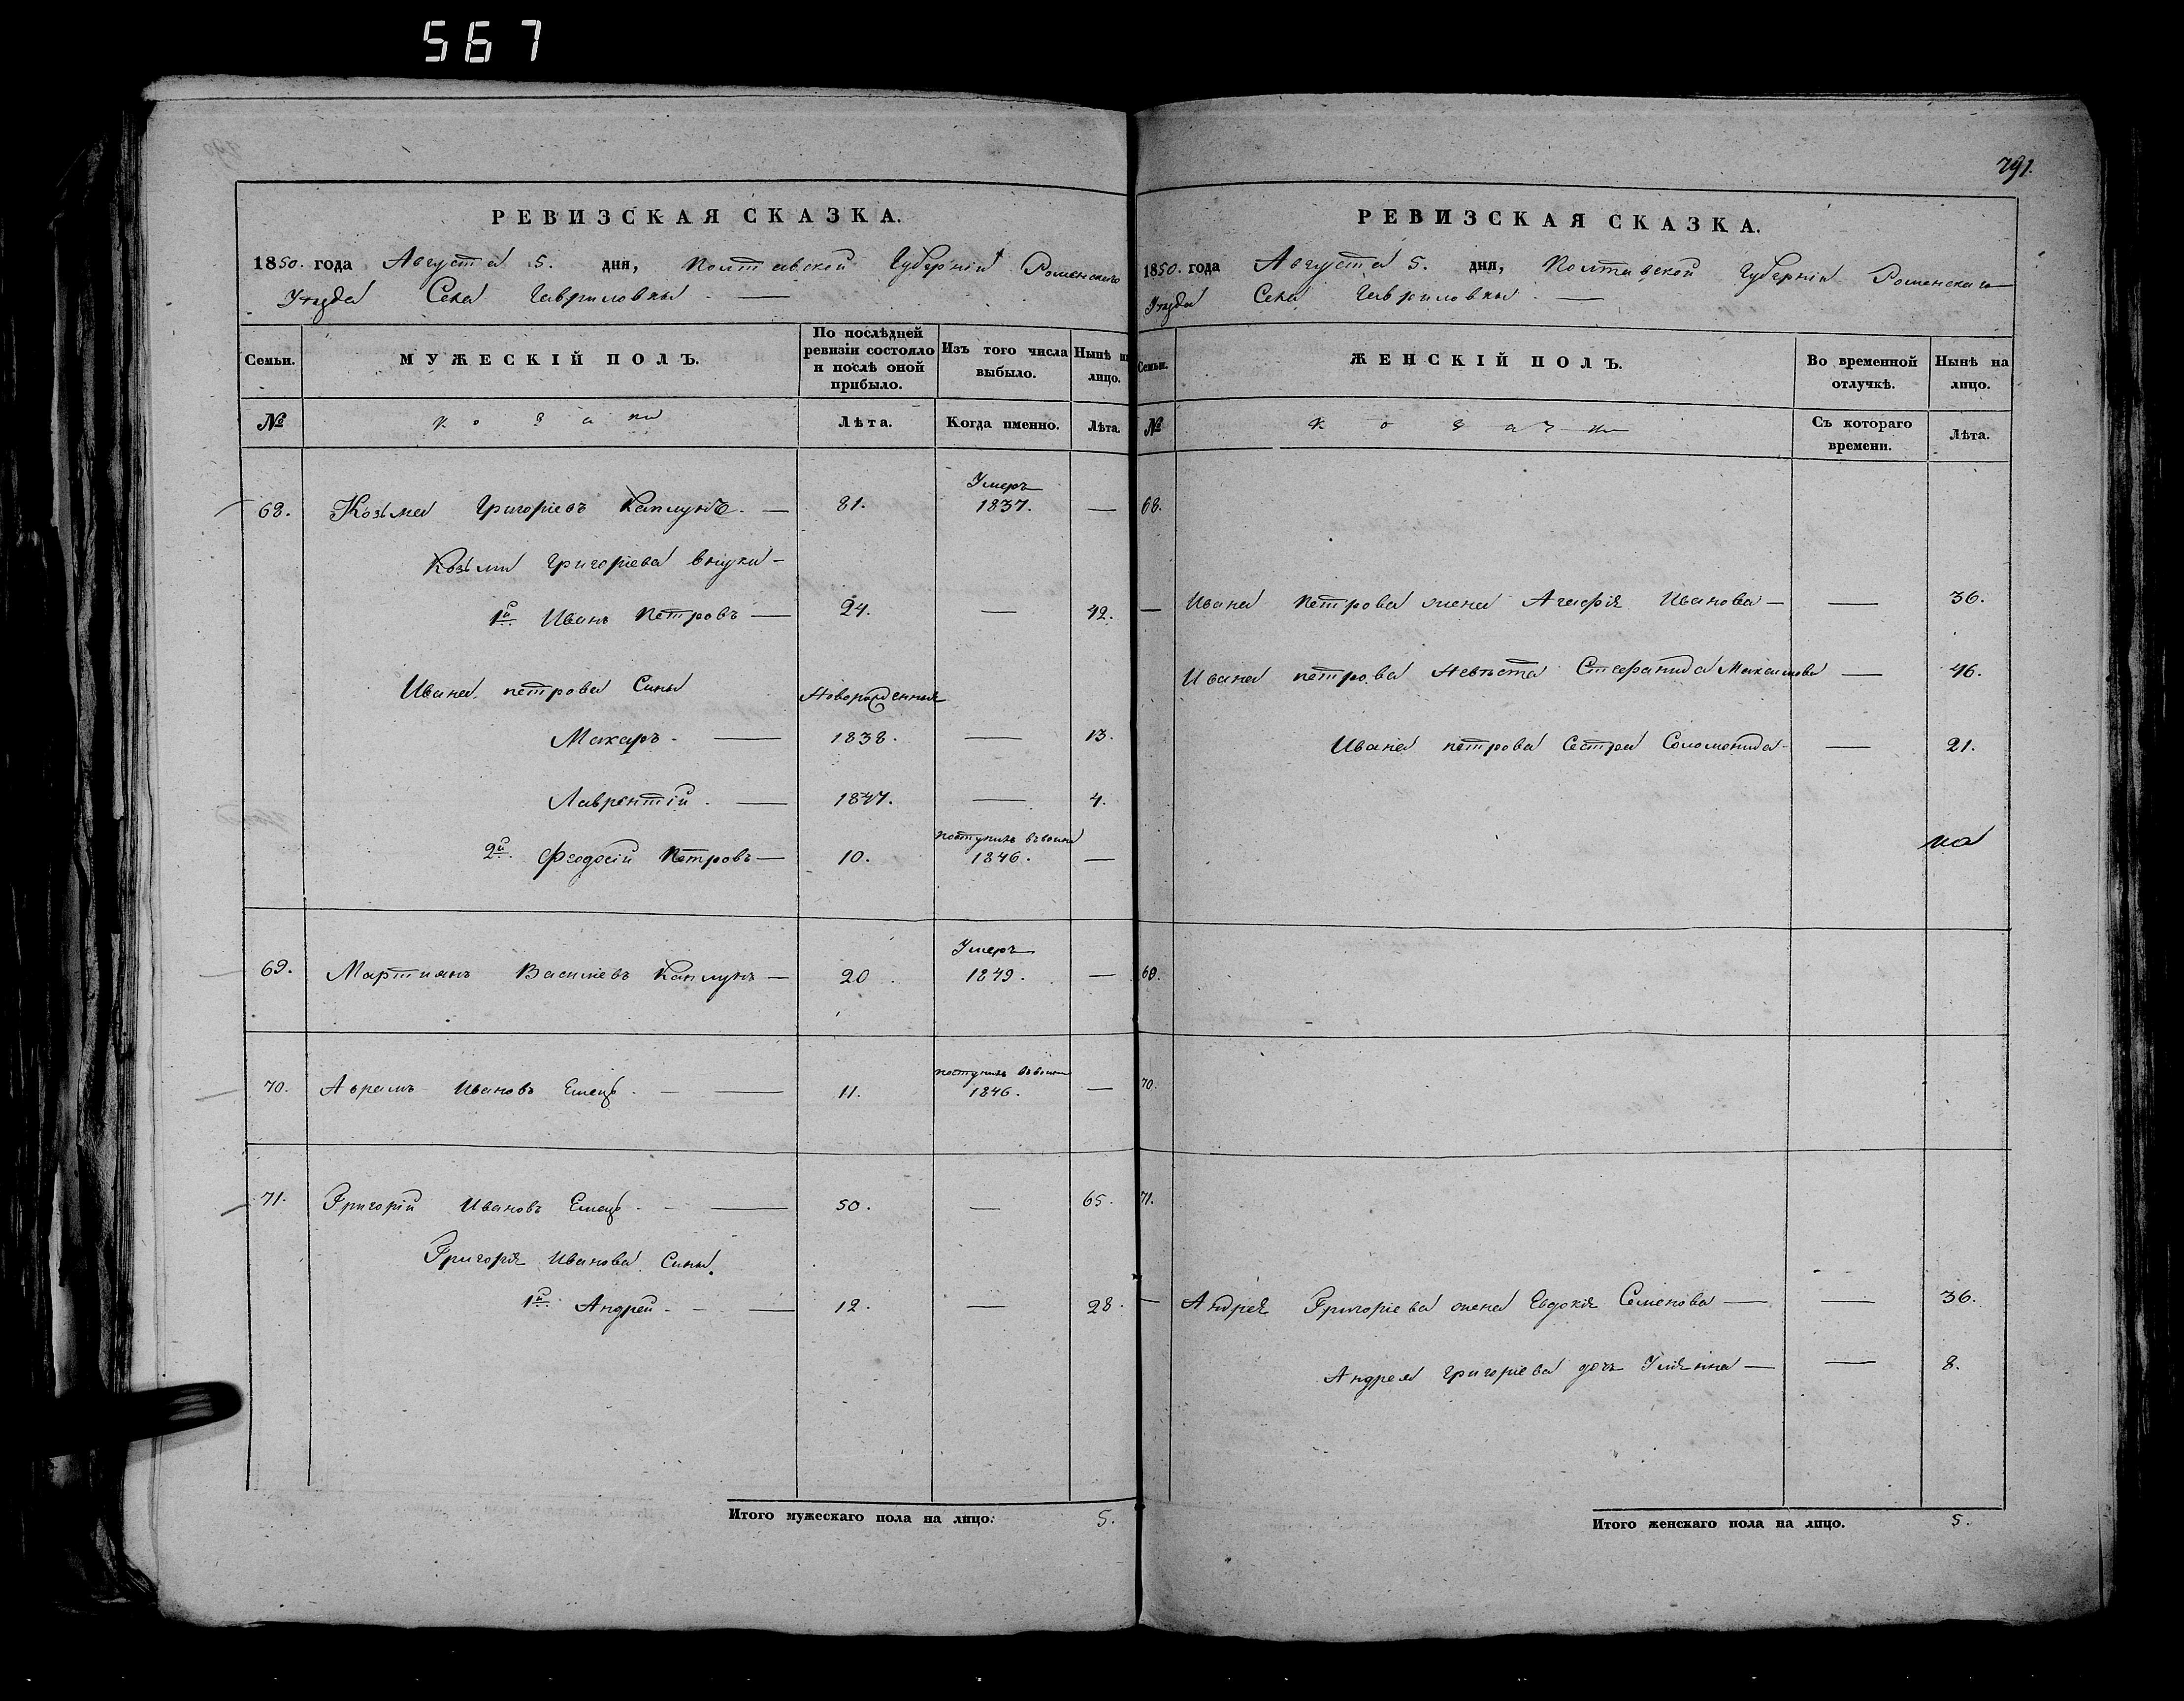 567
791.
РЕВИЗСКАЯ СКАЗКА.
1850. года Августа 5. дня, Полтавской Губерніи Роменскаго
Уезда Села Гавриловки. —
Семьи. МУЖЕСКІЙ ПОЛЪ. По послѣдней ревизіи состояло и послѣ оной прибыло. Изъ того числа выбыло. Нынѣ на лицо.
№ козаки Лѣта. Когда именно. Лѣта.
68. Козьма Григоріевъ Каплунъ. — 81. Умеръ 1837. —
Козьми Григоріева внуки —
1й Иванъ Петровъ — 24. — 42.
Ивана Петрова Сины Новорожденныя
Макаръ. — 1838. — 13.
Лаврентій. — 1847. — 4.
2й. Феодосій Петровъ — 10. поступилъ 1846. —
69. Мартианъ Василіевъ Каплунъ — 20. Умеръ 1849. —
70. Аврамъ Ивановъ Емецъ. — — 11. поступилъ 1846. —
71. Григорій Ивановъ Емецъ. — — 50. — 65.
Григорія Иванова Сины.
1й. Андрей. — — 12. — 28.
Итого мужескаго пола на лицо. 5.
РЕВИЗСКАЯ СКАЗКА.
1850. года Августа 5. дня, Полтавской Губерніи Роменскаго
Уезда Села Гавриловки. —
Семьи. ЖЕНСКІЙ ПОЛЪ. Во временной отлучкѣ. Нынѣ на лицо.
№ козачки Съ котораго времени. Лѣта.
68.
— Ивана Петрова жена Агафія Иванова — — 36.
Ивана Петрова Невѣста Стефанида Максимова — 46.
Ивана Петрова Сестра Соломонида — — 21.
69.
70.
71.
— Андрея Григоріева жена Евдокія Семенова — — 36.
Андрея Григоріева дочь Уліянна — — 8.
Итого женскаго пола на лицо. 5.